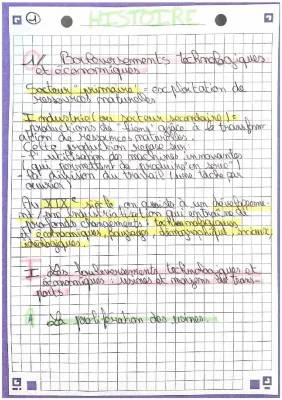 1
HISTOIRE
1/ Bouleversements technologiques
et économiques
Secteur "primaire" = exploitation de
ressources naturelles
Industrie (ou secteur secondaire) =
productions de biens grâce à la transform-
ation de ressources naturelles.
Cette production repose sur:
- l'utilisation des machines innovantes
(qui permettent de produire en série)
- la division du travail (une tâche par
ouvrier)
Au XIXe siècle on assiste à un développeme
nt industrialisation qui entraîne de
profonds changements: technologiques
et économiques, paysages, démographique, sociaux,
idéologiques.
I Les bouleversements technologiques et
économiques: usines et moyens de trans-
ports
A La prolifération des usines